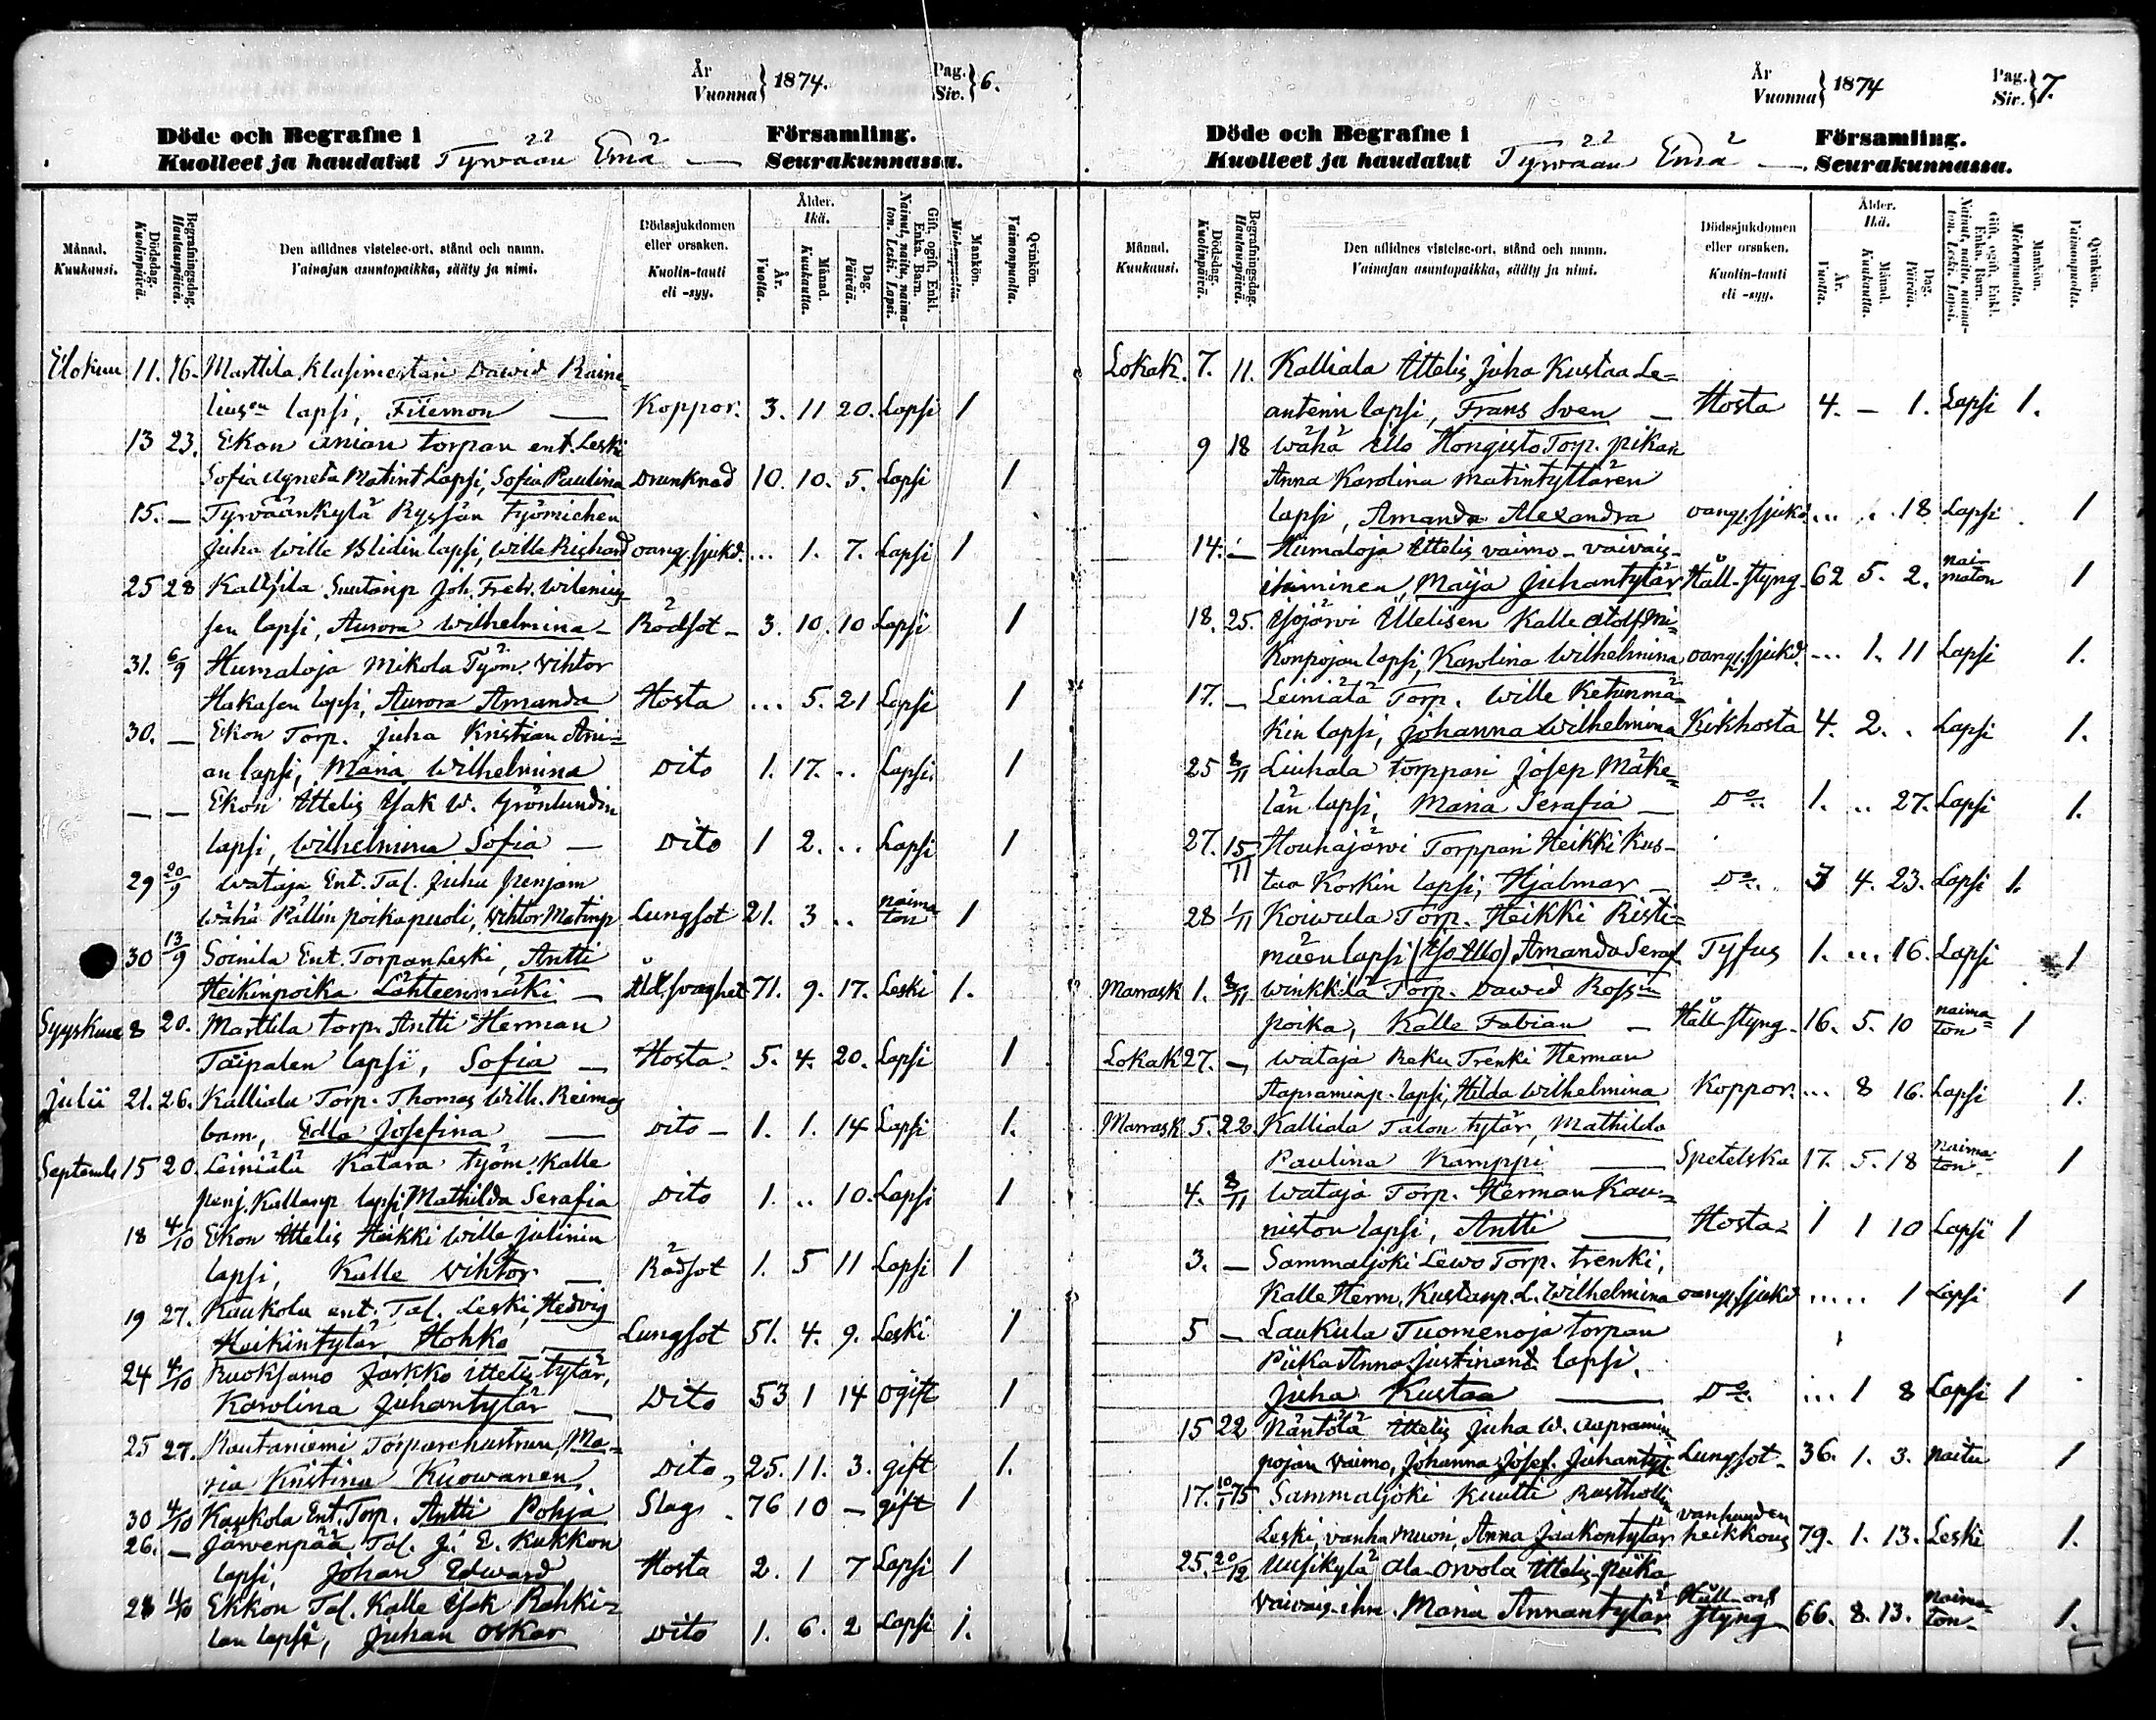 År
Vuonna } 1874.
Pag.
Siv. } 6.
Döde och Begrafne i Församling.
Kuolleet ja haudatut Tyrvään Emä — Seurakunnassa.
Månad. Kuukausi.
Dödsdag. Kuolinpäivä.
Begrafningsdag. Hautauspäivä.
Den aflidnes vistelse-ort, stånd och namn.
Vainajan asuntopaikka, sääty ja nimi.
Dödssjukdomen eller orsaken.
Kuolin-tauti eli -syy.
Ålder. Ikä.
År. Vuotta.
Månad. Kuukautta.
Dag. Päivää.
Gift, ogift, Enkl. Enka. Barn.
Nainut, naitu, naimaton. Leski. Lapsi.
Mankön. Miehenpuolta.
Qvinkön. Vaimonpuolta.
Elokuu 11. 16. Marttila Klasimestari Dawid Raine=
liusen lapsi, Fiiemon — Koppor. 3. 11 20. Lapsi 1
13 23. Ekon Anian torpan ent. Leski
Sofia Agneta Matint Lapsi, Sofia Paulina Drunknad 10. 10. 5. Lapsi 1
15. — Tyrväänkylä Ryssän työmiehen
Juha Wille Blidin lapsi, Wille Richard oang. sjukd. ... 1. 7. Lapsi 1
25 28 Kallsila Suutarip Joh. Fredr. Wilenius
sen lapsi, Aurora Wilhelmina — Rödsot — 3. 10. 10 Lapsi 1
31. 6/9 Humaloja Mikola Työm. Vihtor
Hakasen lapsi, Aurora Amanda Hosta ... 5. 21 Lapsi 1
30. — Ekon Torp. Juha Kristian Ani=
an lapsi, Maria Wilhelmina Dito 1. 17. .. Lapsi. 1
— — Ekon Ittelis Isak W. Grönlundin
lapsi, Wilhelmina Sofia — Dito 1 2. .. Lapsi 1
29 20/9 Wataja Ent. Tal. Juhu penjam
Wähä Pällin poikapuoli, Vihtor Matinp Lungsot 21. 3 .. naima=ton 1
30 13/9 Soinila Ent. Torpan Leski, Antti
Heikinpoika Lähteenmäki — Åld. svaghet 71. 9. 17. Leski 1.
Syyskuu 8 20. Marttila torp. Antti Herman
Taipalen lapsi, Sofia — Hosta. 5. 4. 20. Lapsi 1
Julii 21. 26. Kalliala Torp. Thomas Wilh. Reimas
barn, Edla Josefina — Dito — 1. 1. 14 Lapsi 1.
Septemb 15 20. Leiniälä Katara työm. Kalle
penj. Kallenp lapsi Mathilda Serafia Dito 1. .. 10. Lapsi 1
18 4/10 Ekon Ittelis Heikki Wille Julinin
lapsi, Kalle Vihtor — Rödsot 1. 5 11 Lapsi 1
19 27. Kaukola ent. Tal. Leski, Hedvig
Heikintytär, Hohko — Lungsot 51. 4. 9. Leski 1
24 4/10 Ruoksamo Jaakko ittelis tytär,
Karolina Juhantytär — Dito 53 1 14 ogift 1
25 27. Rautaniemi Torparehustrun, Ma=
ria Kristina Kuowanen Dito, 25. 11. 3. gift 1.
30 4/10 Kaukola Ent. Torp. Antti Pohja Slag. 76 10 — gift 1
26. — Järvenpää Tal. J. E. Kukkon
lapsi, Johan Edward Hosta 2. 1 7 Lapsi 1
28 11/10 Ekkon Tal. Kalle Isak Rahki=
lan lapsi, Juhan Oskar Dito 1. 6. 2 Lapsi 1.
År
Vuonna } 1874
Pag.
Siv. } 7.
Döde och Begrafne i Församling.
Kuolleet ja haudatut Tyrvään Emä — Seurakunnassa.
Månad. Kuukausi.
Dödsdag. Kuolinpäivä.
Begrafningsdag. Hautauspäivä.
Den aflidnes vistelse-ort, stånd och namn.
Vainajan asuntopaikka, sääty ja nimi.
Dödssjukdomen eller orsaken.
Kuolin-tauti eli -syy.
Ålder. Ikä.
År. Vuotta.
Månad. Kuukautta.
Dag. Päivää.
Gift, ogift, Enkl. Enka. Barn.
Nainut, naitu, naimaton. Leski. Lapsi.
Mankön. Miehenpuolta.
Qvinkön. Vaimonpuolta.
Lokak. 7. 11. Kalliala Ittelis Juha Kustaa Le=
antenin lapsi, Frans Sven — Hosta 4. — 1. Lapsi 1.
9 18 Wähä Ullo Hongisto Torp. pikan
Anna Karolina Matintyttären
lapsi, Amanda Alexandra oang. sjukd. ... . 18 Lapsi 1
14. — Humaloja Ittelis vaimo — vaivais=
ihminen, Maija Juhantytär Håll-styng 62 5. 2. nai=maton 1
18. 25. Isojärvi Ittelisen Kalle Adolf Mi=
konpojan lapsi, Karolina Wilhelmina oang. sjukd. ... 1. 11 Lapsi 1.
17. — Leiniälä Torp. Wille Ketunmä=
kin lapsi, Johanna Wilhelmina Kikhosta 4. 2. . Lapsi 1.
25 8/11 Liuhala torppari Josep Mäke=
län lapsi, Maria Serafia — Do. 1. .. 27. Lapsi 1.
27. 15/11 Houhajärvi Torppari Heikki Kus=
taa Korkin lapsi, Hjalmar — Do. 3 4. 23. Lapsi 1.
28 1/11 Koiwula Torp. Heikki Risti=
mäen lapsi (Iso Ullo) Amanda Seraf. Tyfus 1. ... 16. Lapsi 1
Marrask 1. 8/11 Winkkilä Torp. Dawid Rossin
poika, Kalle Fabian — Håll-styng 16. 5. 10 naima=ton 1
Lokak 27. — Wataja Reku Trenki Herman
Aapraminp. lapsi, Hilda Wilhelmina Koppor. ... 8 16. Lapsi 1.
Marrask 5. 22. Kalliala Talon tytär, Mathilda
Paulina Kamppi — Spetelska 17. 5. 18 Naima=ton. 1
4. 8/11 Wataja Torp. Herman Kau=
niston lapsi, Antti — Hosta 1 1 10 Lapsi 1
3. — Sammaljoki Lewo Torp. trenki,
Kalle Herm. Kustanp. L. Wilhelmina oang. sjukd ..... 1 Lapsi 1
5 — Laukula Tuomenoja torpan
Piika Anna Justinand lapsi,
Juha Kustaa — Do. ... 1 8 Lapsi 1
15 22 Näntölä Ittelis Juha W. Aapramin
pojan vaimo, Johanna Josef. Juhantyt. Lungsot. 36. 1. 3. naitu 1
17. 10/1 75 Sammaljoki Kuutti Rusthollin
Leski, vanha muori, Anna Jaakontytär vanhuuden heikkous 79. 1. 13. Leski 1.
25. 20/12 Uusikylä Ala-Orvola Ittelis piika
Vaivais-ihm. Maria Annantytär Håll- och styng 66. 8. 13. Naima=ton. 1.